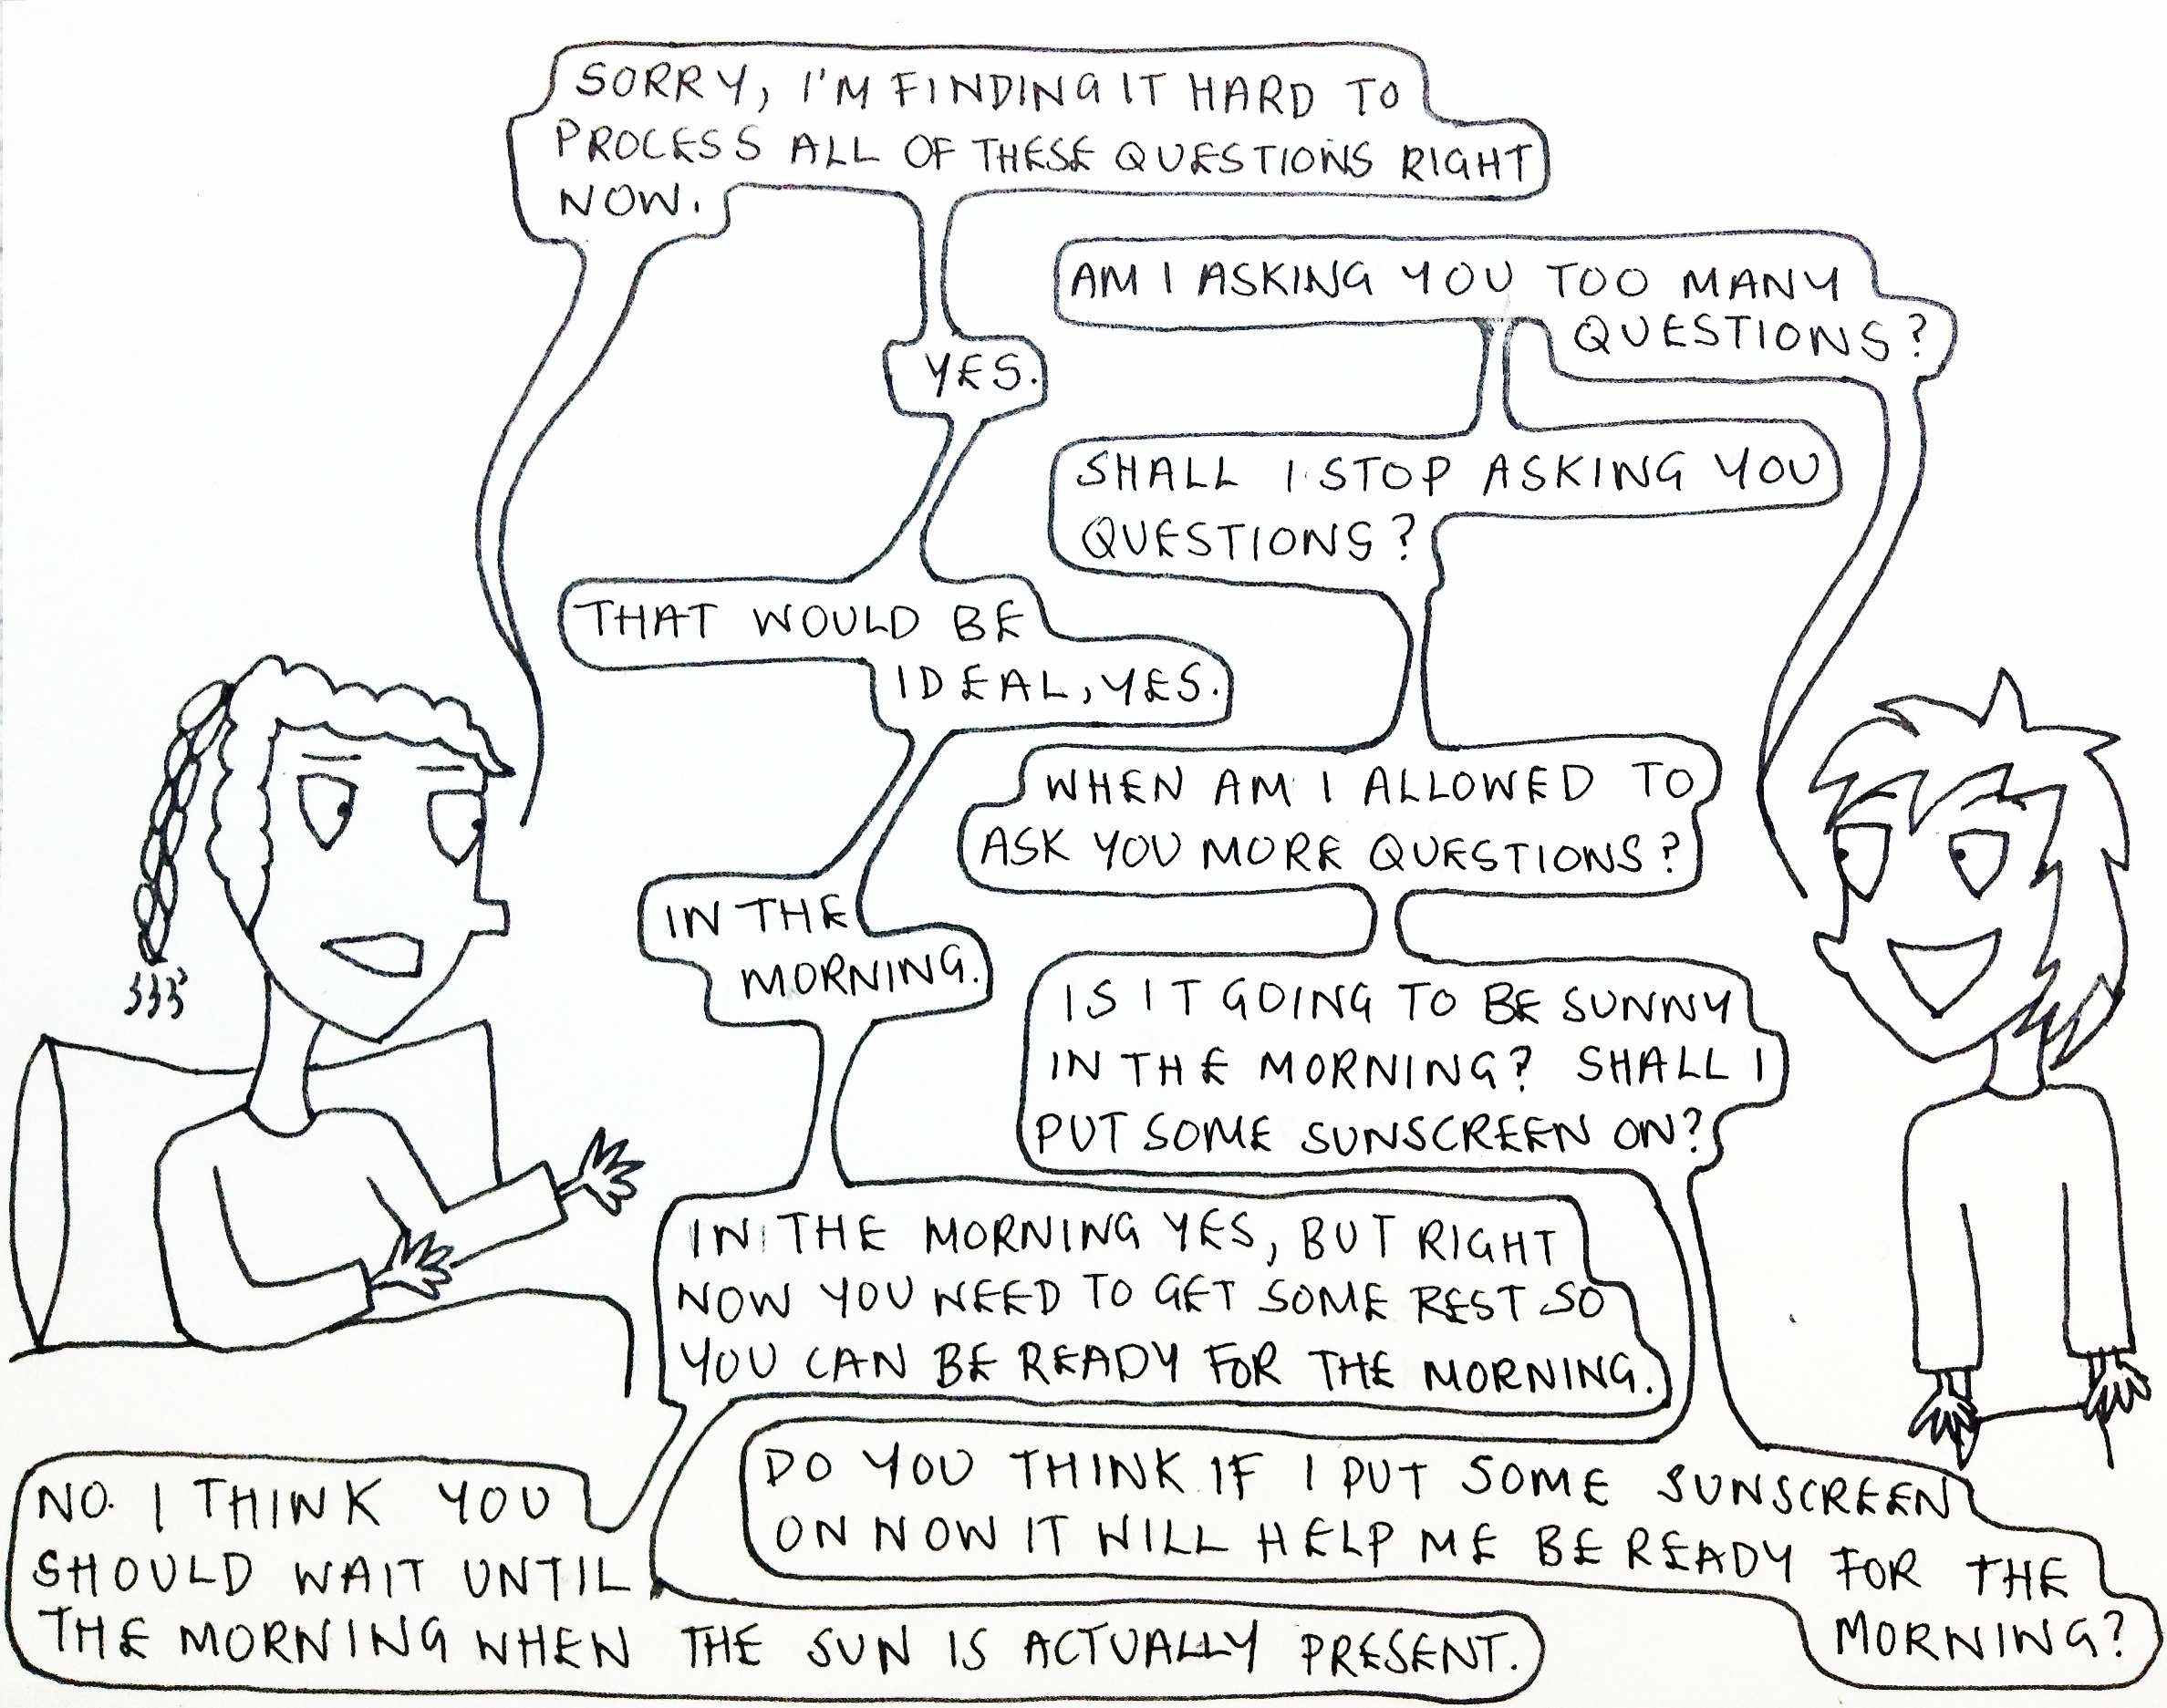 SORRY, I'M FINDING IT HARD TO
PROCESS ALL OF THESE QUESTIONS RIGHT
NOW.
AM I ASKING YOU TOO MANY
QUESTIONS?
YES.
SHALL I STOP ASKING YOU
QUESTIONS?
THAT WOULD BE
IDEAL, YES.
WHEN AM I ALLOWED TO
ASK YOU MORE QUESTIONS?
IN THE
MORNING.
IS IT GOING TO BE SUNNY
IN THE MORNING? SHALL I
PUT SOME SUNSCREEN ON?
IN THE MORNING YES, BUT RIGHT
NOW YOU NEED TO GET SOME REST SO
YOU CAN BE READY FOR THE MORNING.
DO YOU THINK IF I PUT SOME SUNSCREEN
ON NOW IT WILL HELP ME BE READY FOR THE
MORNING?
NO. I THINK YOU
SHOULD WAIT UNTIL
THE MORNING WHEN THE SUN IS ACTUALLY PRESENT.